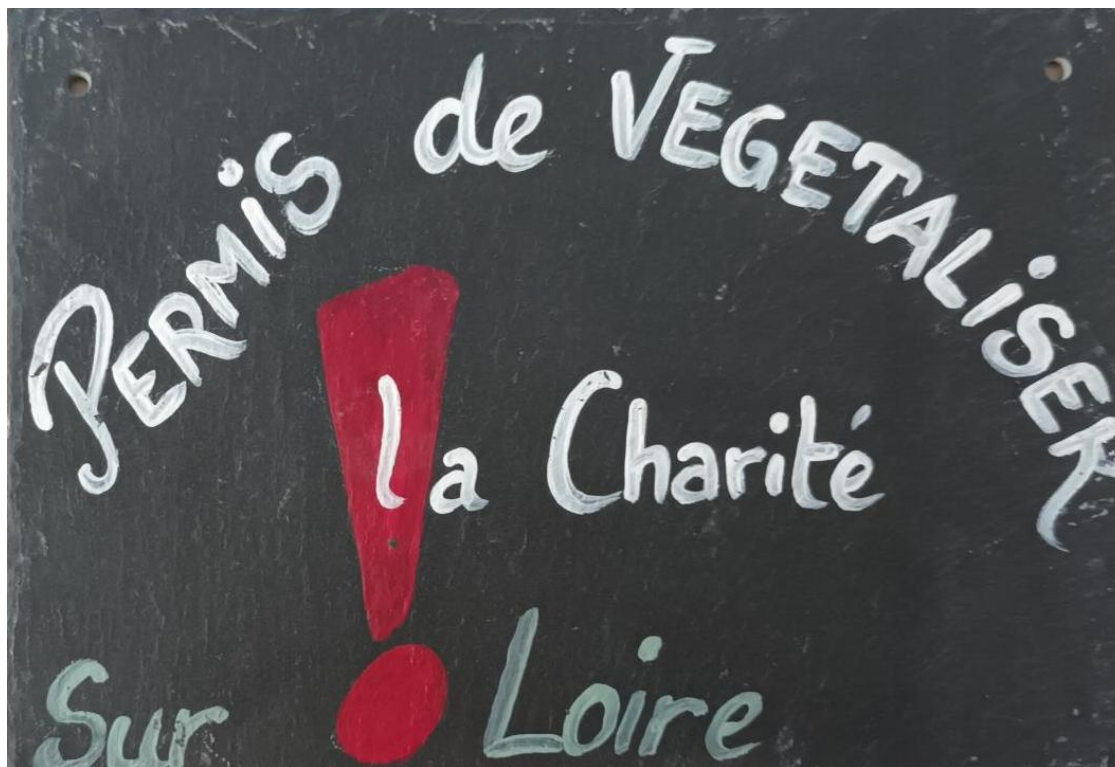 PERMIS de VEGETALISER
la Charité
Sur Loire